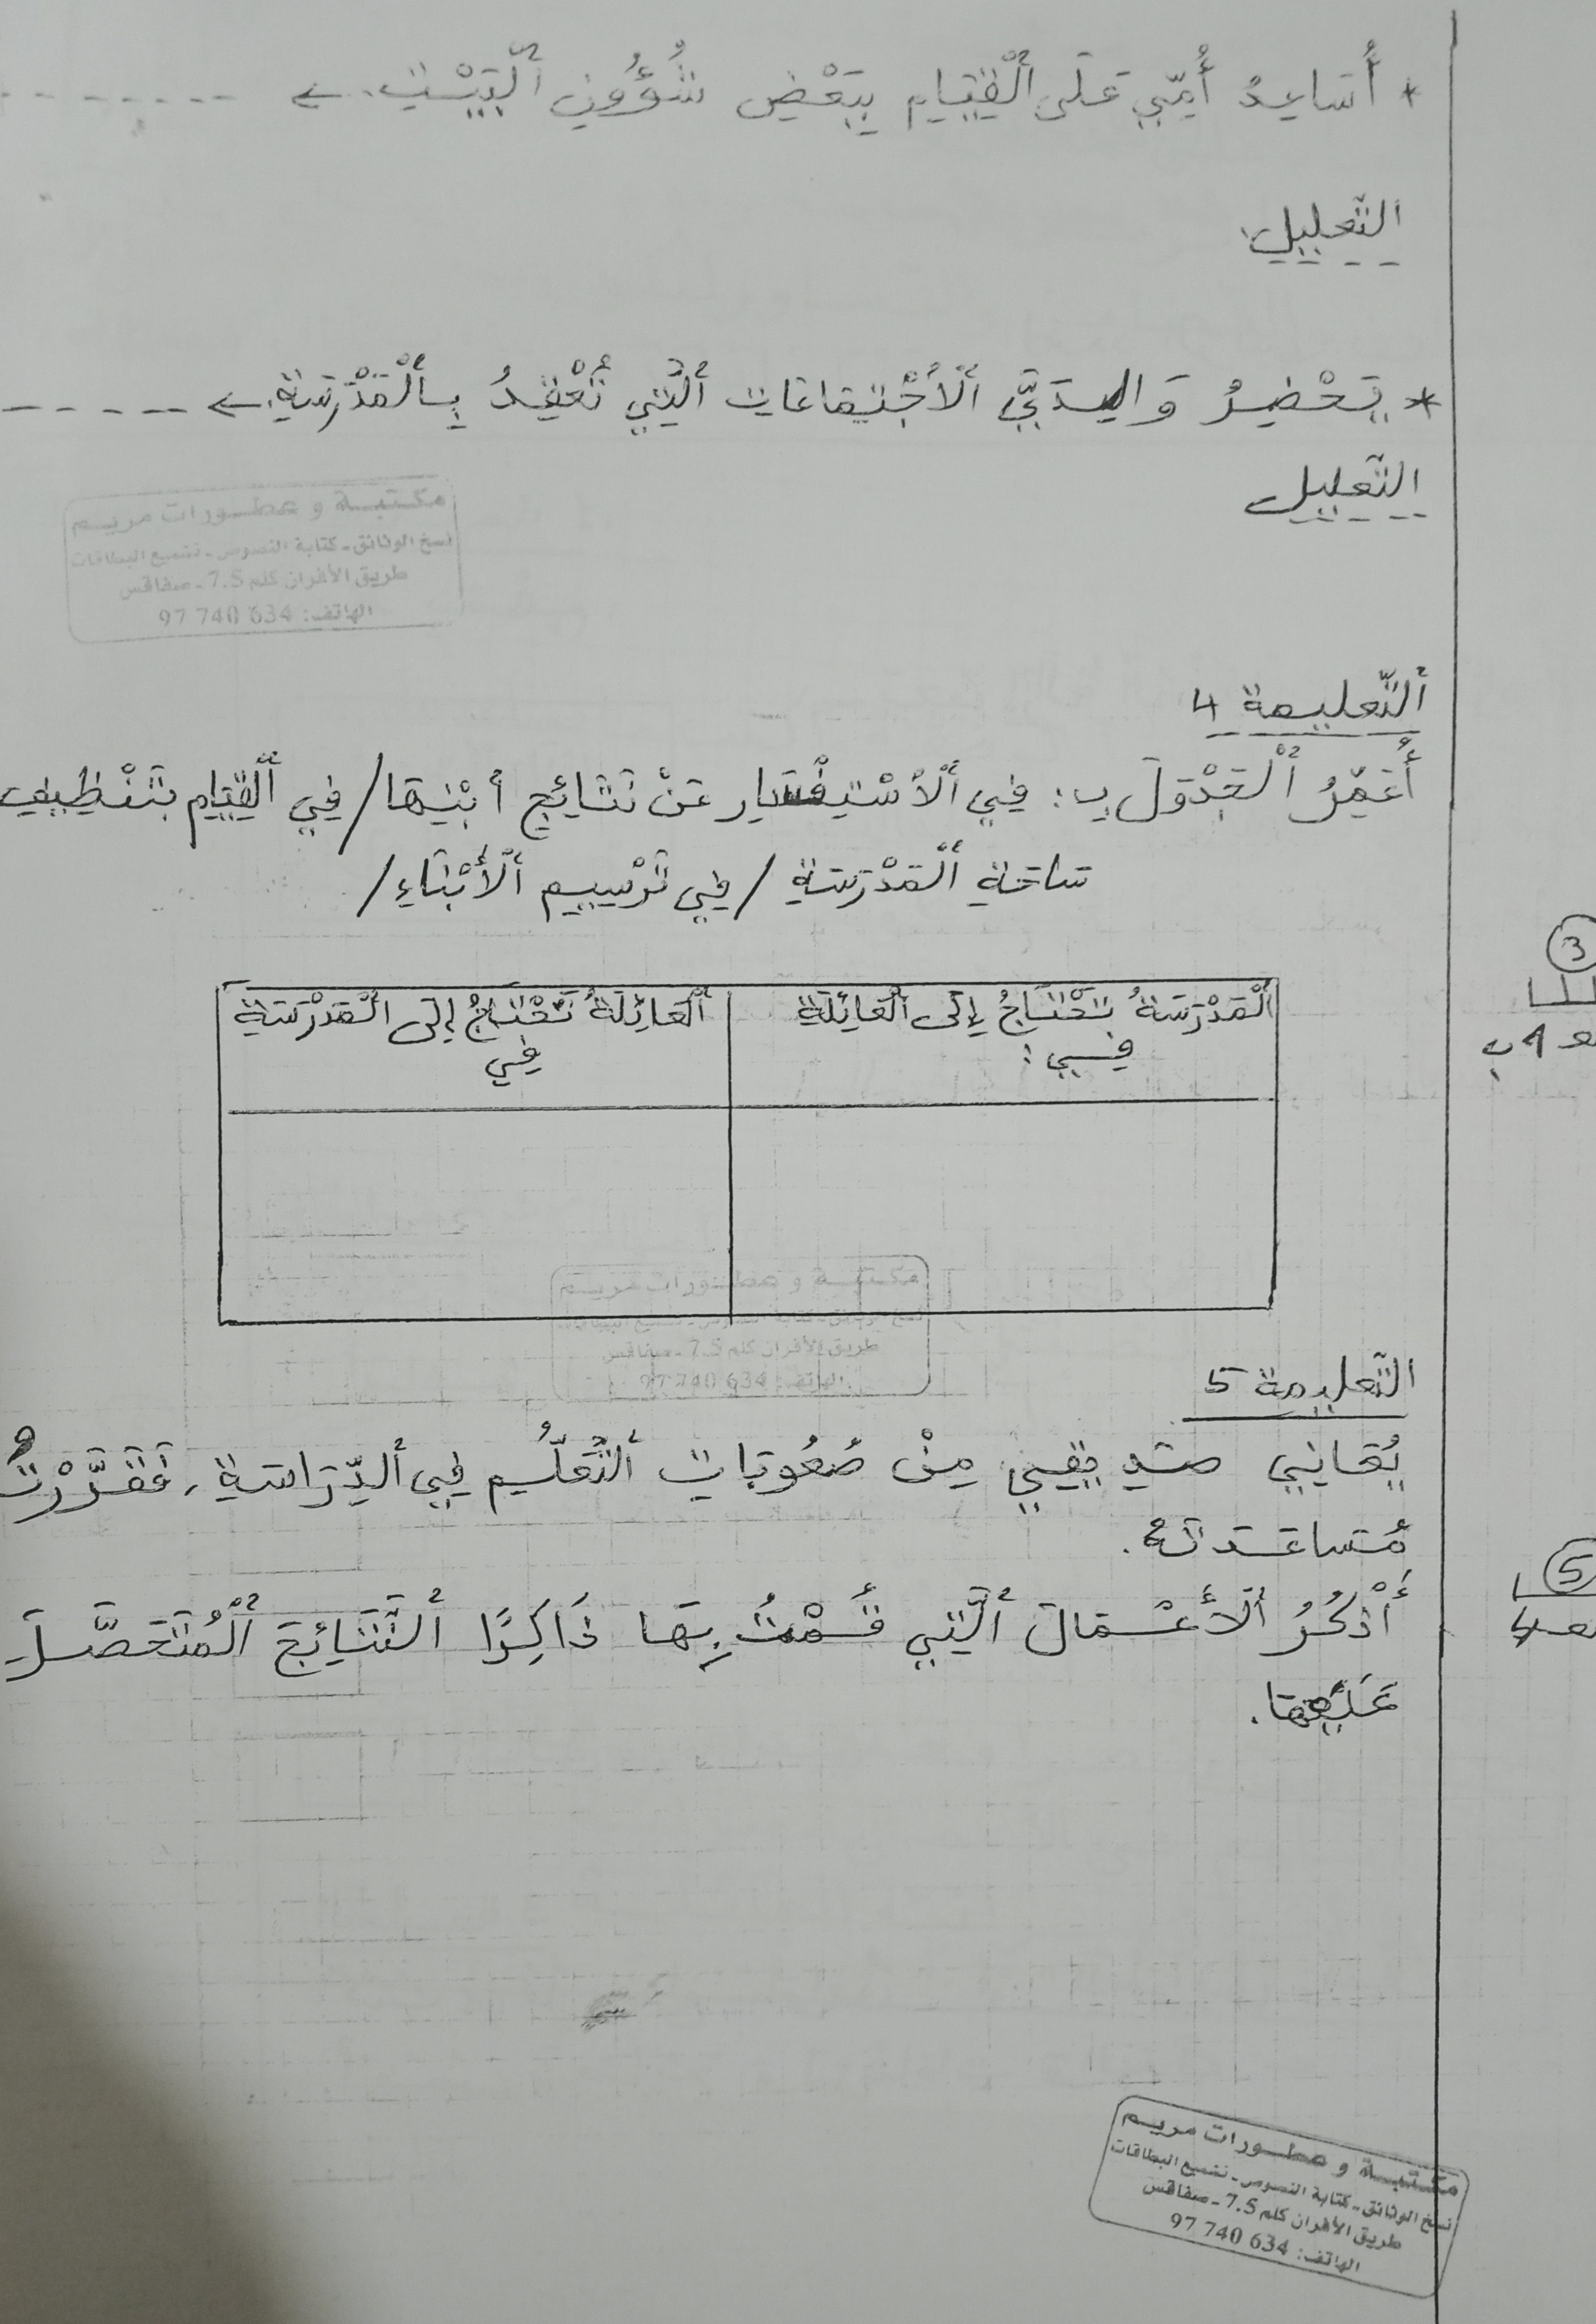 * أُسَاعِدُ أُمِّي عَلَى ٱلْقِيَامِ بِبَعْضِ شُؤُونِ ٱلْبَيْتِ. ← --------
التّعليل:
* يَحْضُرُ وَالِدَيَّ ٱلْاجْتِمَاعَاتِ ٱلَّتِي تُعْقَدُ بِٱلْمَدْرَسَةِ. ← -----
التّعليل
مكتبة و عطورات مريم
نسخ الوثائق - كتابة النصوص - تلميع البطاقات
طريق الأفران كلم 7.5 - صفاقس
الهاتف: 634 740 97
ٱلتّعليمة 4
أُعَمِّرُ ٱلْجَدْوَلَ بِ: فِي ٱلْاسْتِفْسَارِ عَنْ نَتَائِجِ أَبْنِهَا/ فِي ٱلْقِيَامِ بِتَنْظِيفِ
سَاحَةِ ٱلْمَدْرَسَةِ / فِي تَرْسِيمِ ٱلْأَبْنَاءِ/
ٱلْمَدْرَسَةُ تَحْتَاجُ إِلَى ٱلْعَائِلَةِ
فِي :
ٱلْعَائِلَةُ تَحْتَاجُ إِلَى ٱلْمَدْرَسَةِ
فِي
3
مع 1 ب
مكتبة و عطورات مريم
طريق الأفران كلم 7.5 - صفاقس
الهاتف: 634 740 97
التّعليمة 5
يُعَانِي صَدِيقِي مِنْ صُعُوبَاتِ ٱلتَّعَلُّمِ فِي ٱلدِّرَاسَةِ، فَقَرَّرْتُ
مُسَاعَدَتَهُ.
أَذْكُرُ ٱلْأَعْمَالَ ٱلَّتِي قُمْتُ بِهَا ذَاكِرًا ٱلنَّتَائِجَ ٱلْمُتَحَصَّلَ
عَلَيْهَا.
5
مكتبة و عطورات مريم
نسخ الوثائق - كتابة النصوص - تلميع البطاقات
طريق الأفران كلم 7.5 - صفاقس
الهاتف: 634 740 97